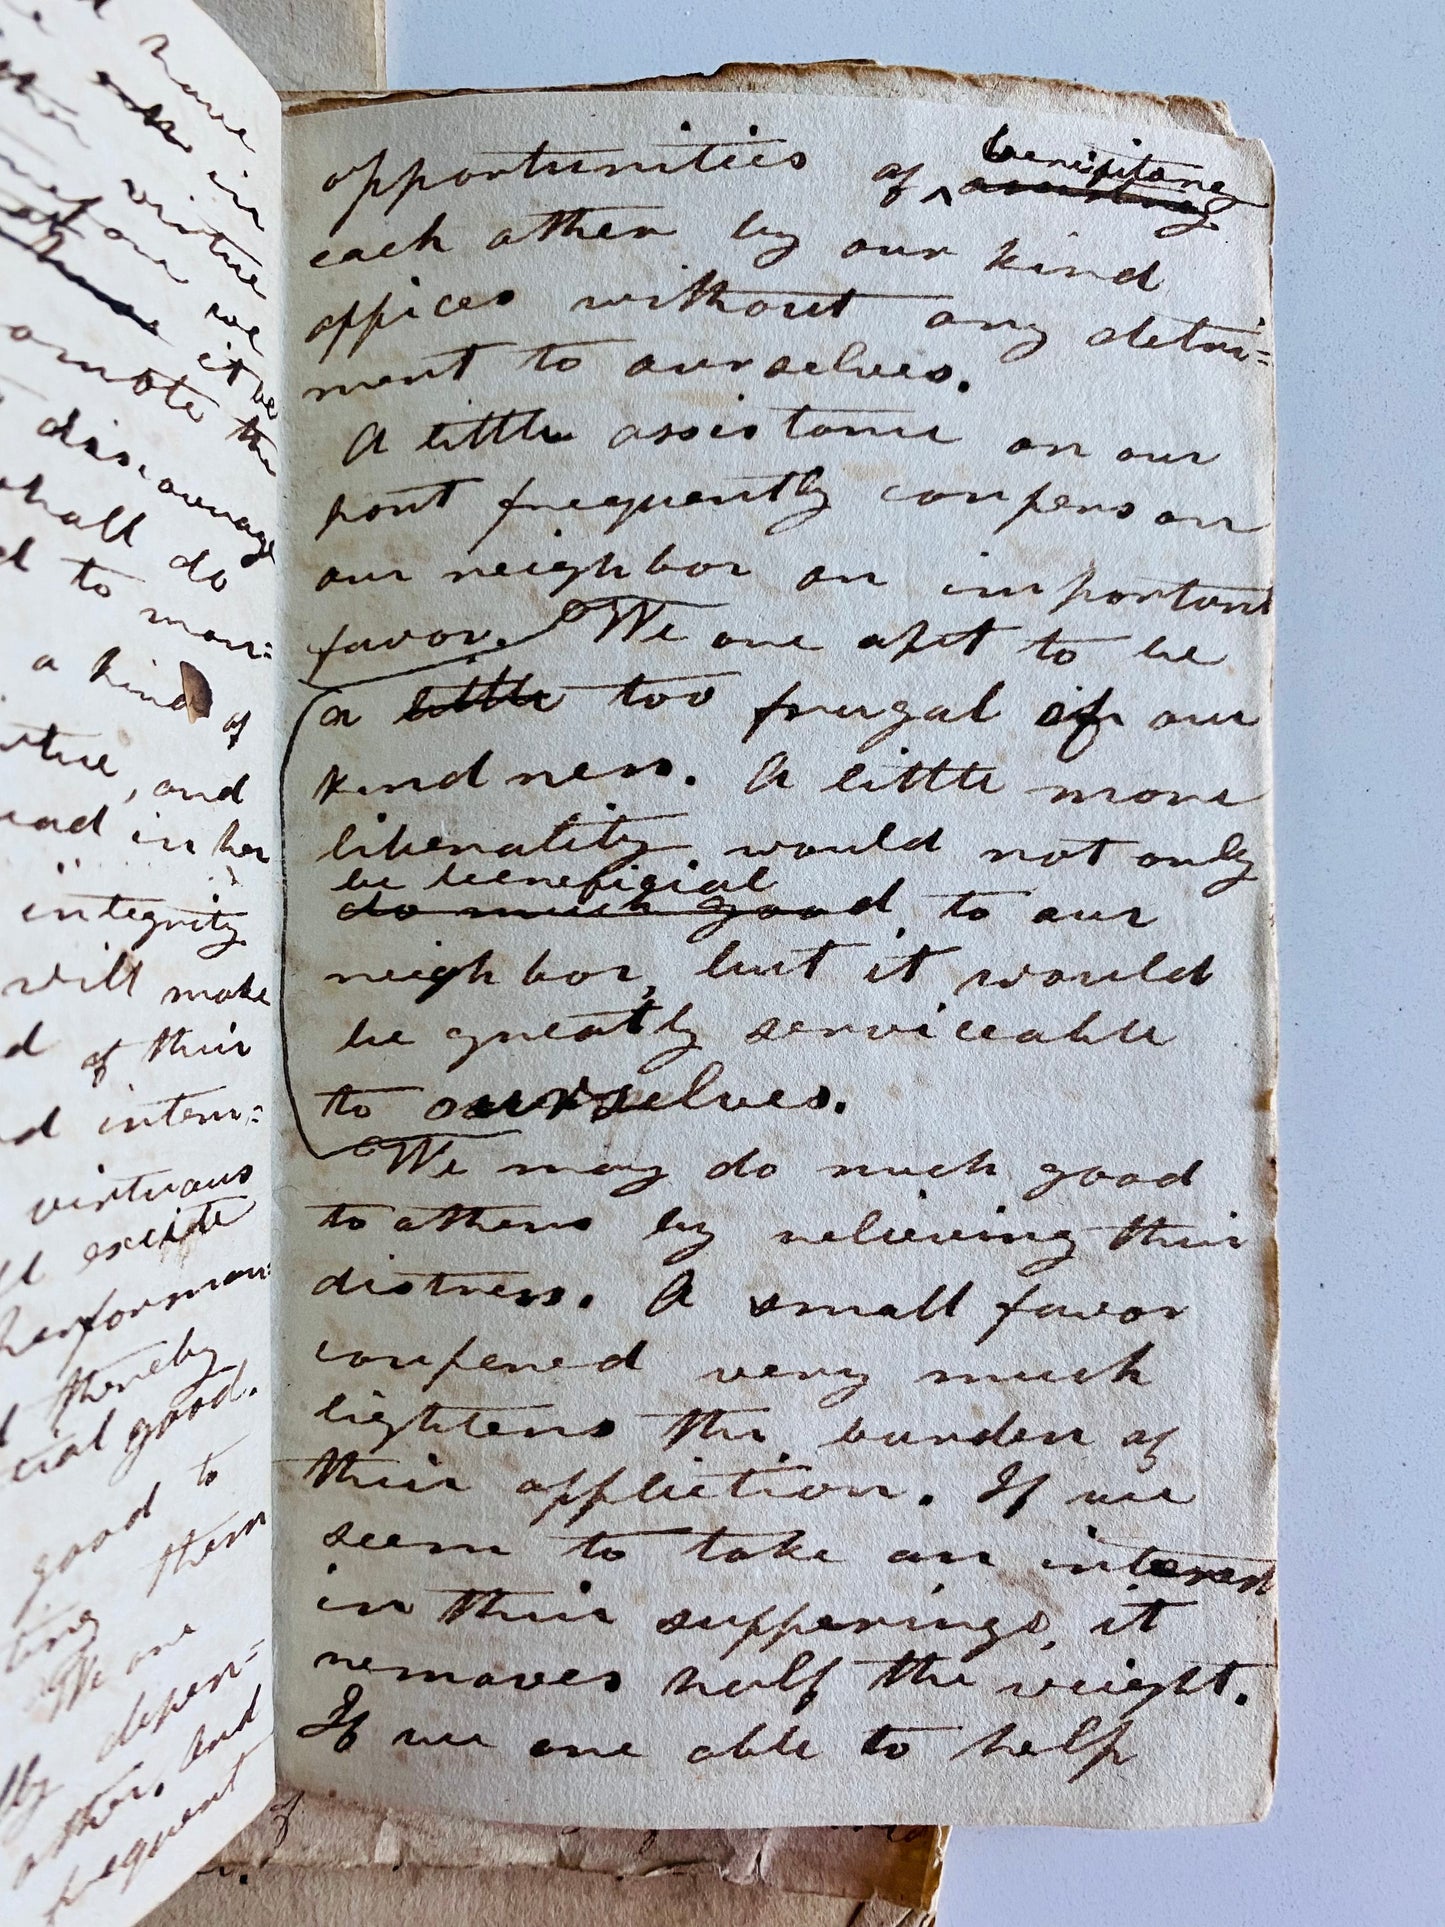 have
in
virtue
we
it be
omote the
discourage
shall do
d to man=
a kind of
virtue, and
ead in her
integrity
will make
d of their
d intern=
virtuous
ll excite
performan=
d thereby
cial good.
good to
ting them
We are
lly depen=
other, and
frequent
opportunities of benifiting
each other by our kind
offices without any detri=
ment to ourselves.
A little assistance on our
part frequently confers on
our neighbor an important
favor. We are apt to be
a little too frugal of our
kindness. A little more
liberality would not only
be beneficial
do much good to our
neighbor, but it would
be greatly serviceable
to ourselves.
We may do much good
to others by relieving their
distress. A small favor
confered very much
lightens the burden of
their affliction. If we
seem to take an interest
in their sufferings, it
removes half the weight.
If we are able to help